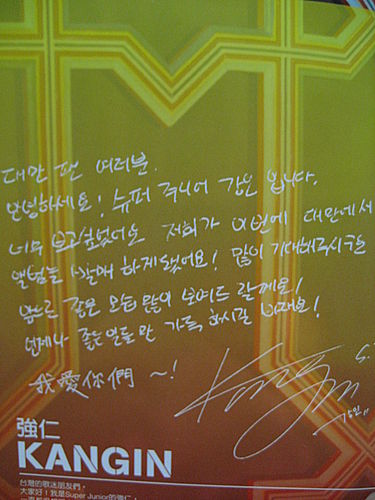 대만 팬 여러분.
안녕하세요! 슈퍼 주니어 강인 입니다.
너무 보고싶었어요 저희가 이번에 대만에서
앨범을 발매 하게됐어요! 많이 기대해주시구요
앞으로 좋은 모습 많이 보여드릴게요!
언제나 좋은 일들만 가득 하시길 바래요!
我愛你們 ~!
Kangin
강인
強仁
KANGIN
台灣的歌迷朋友們，
大家好！我是Super Junior的強仁，